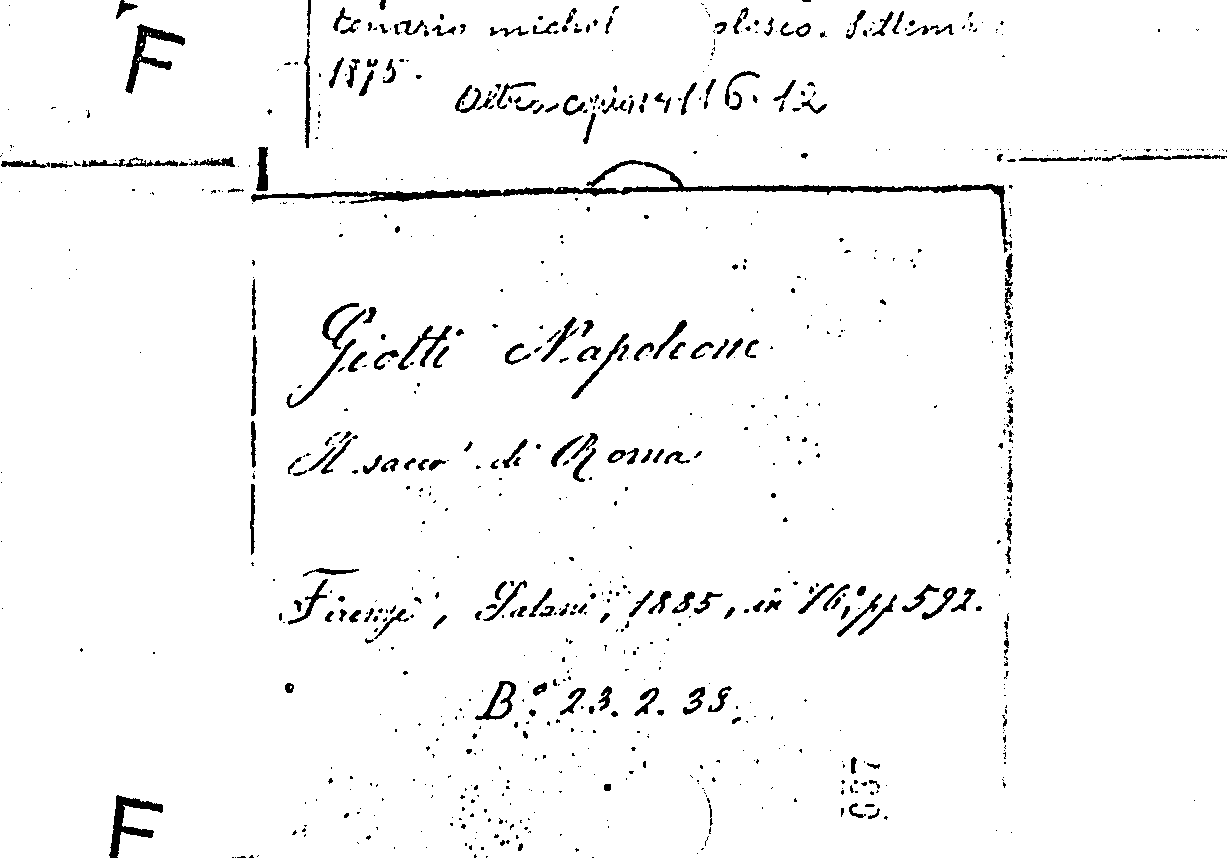 F
tenario michel olesco. Settem
1875.
Oltra copia: 4116. 12
Giotti Napoleone
Il sacco di Roma
Firenze, Salani, 1885, in 16.° pp 592.
B.° 23. 2. 39.
037
F